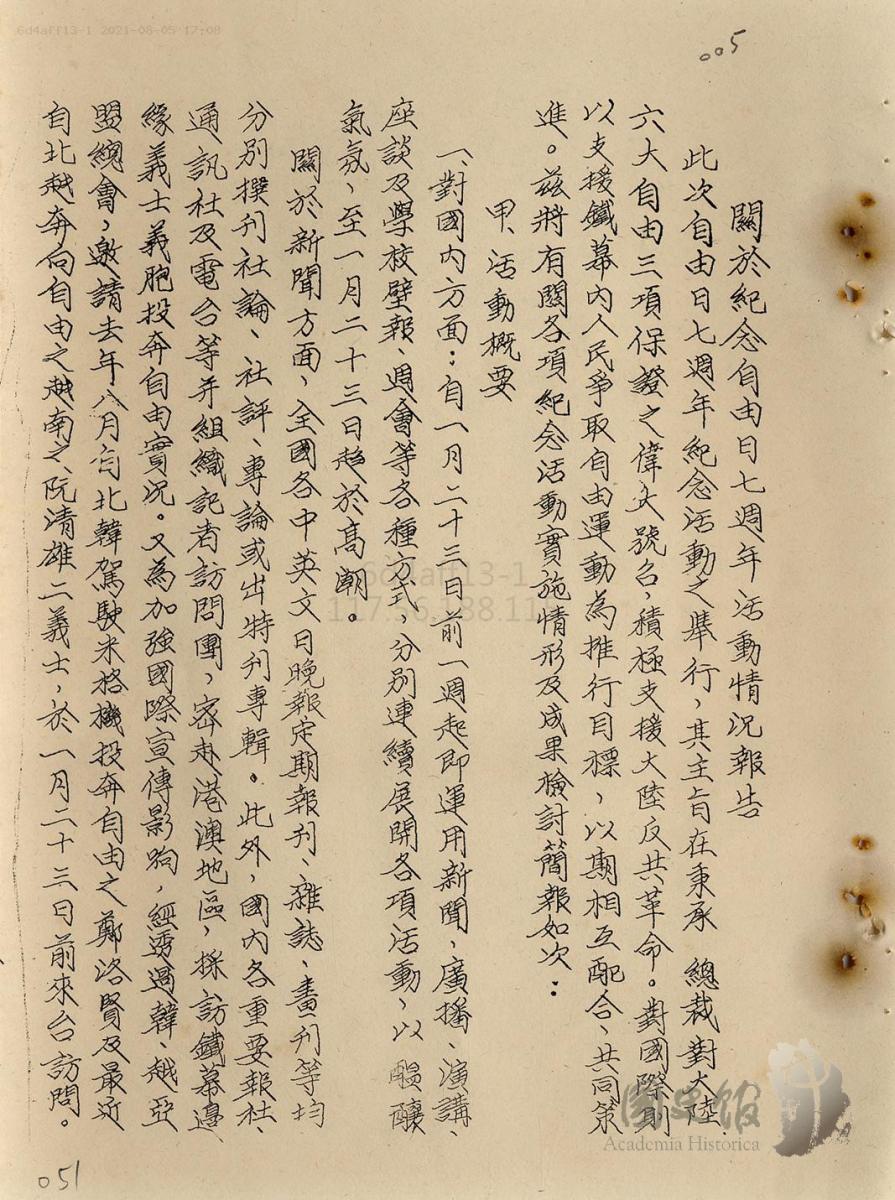 6d4aff13-1 2021-08-05 17:08
005
關於紀念自由日七週年活動情況報告
此次自由日七週年紀念活動之舉行，其主旨在秉承　總裁對大陸
六大自由三項保證之偉大號召，積極支援大陸反共革命。對國際則
以支援鐵幕內人民爭取自由運動為推行目標，以期相互配合、共同策
進。茲將有關各項紀念活動實施情形及成果檢討簡報如次：
甲、活動概要
一、對國內方面：自一月二十三日前一週起即運用新聞，廣播、演講、
座談及學校壁報、週會等各種方式，分別連續展開各項活動，以醞釀
氣氛，至一月二十三日趨於高潮。
關於新聞方面，全國各中英文日晚報定期報刊、雜誌、畫刊等均
分別撰刊社論、社評、專論或出特刊專輯。此外，國內各重要報社、
通訊社及電台等并組織記者訪問團，密赴港澳地區，採訪鐵幕邊
緣義士義胞投奔自由實況。又為加強國際宣傳影响，經透過韓、越亞
盟總會，邀請去年八月自北韓駕駛米格機投奔自由之鄭洛賢及最近
自北越奔向自由之越南之阮清雄二義士，於一月二十三日前來台訪問。
6d4aff13-1
國史館
Academia Historica
051